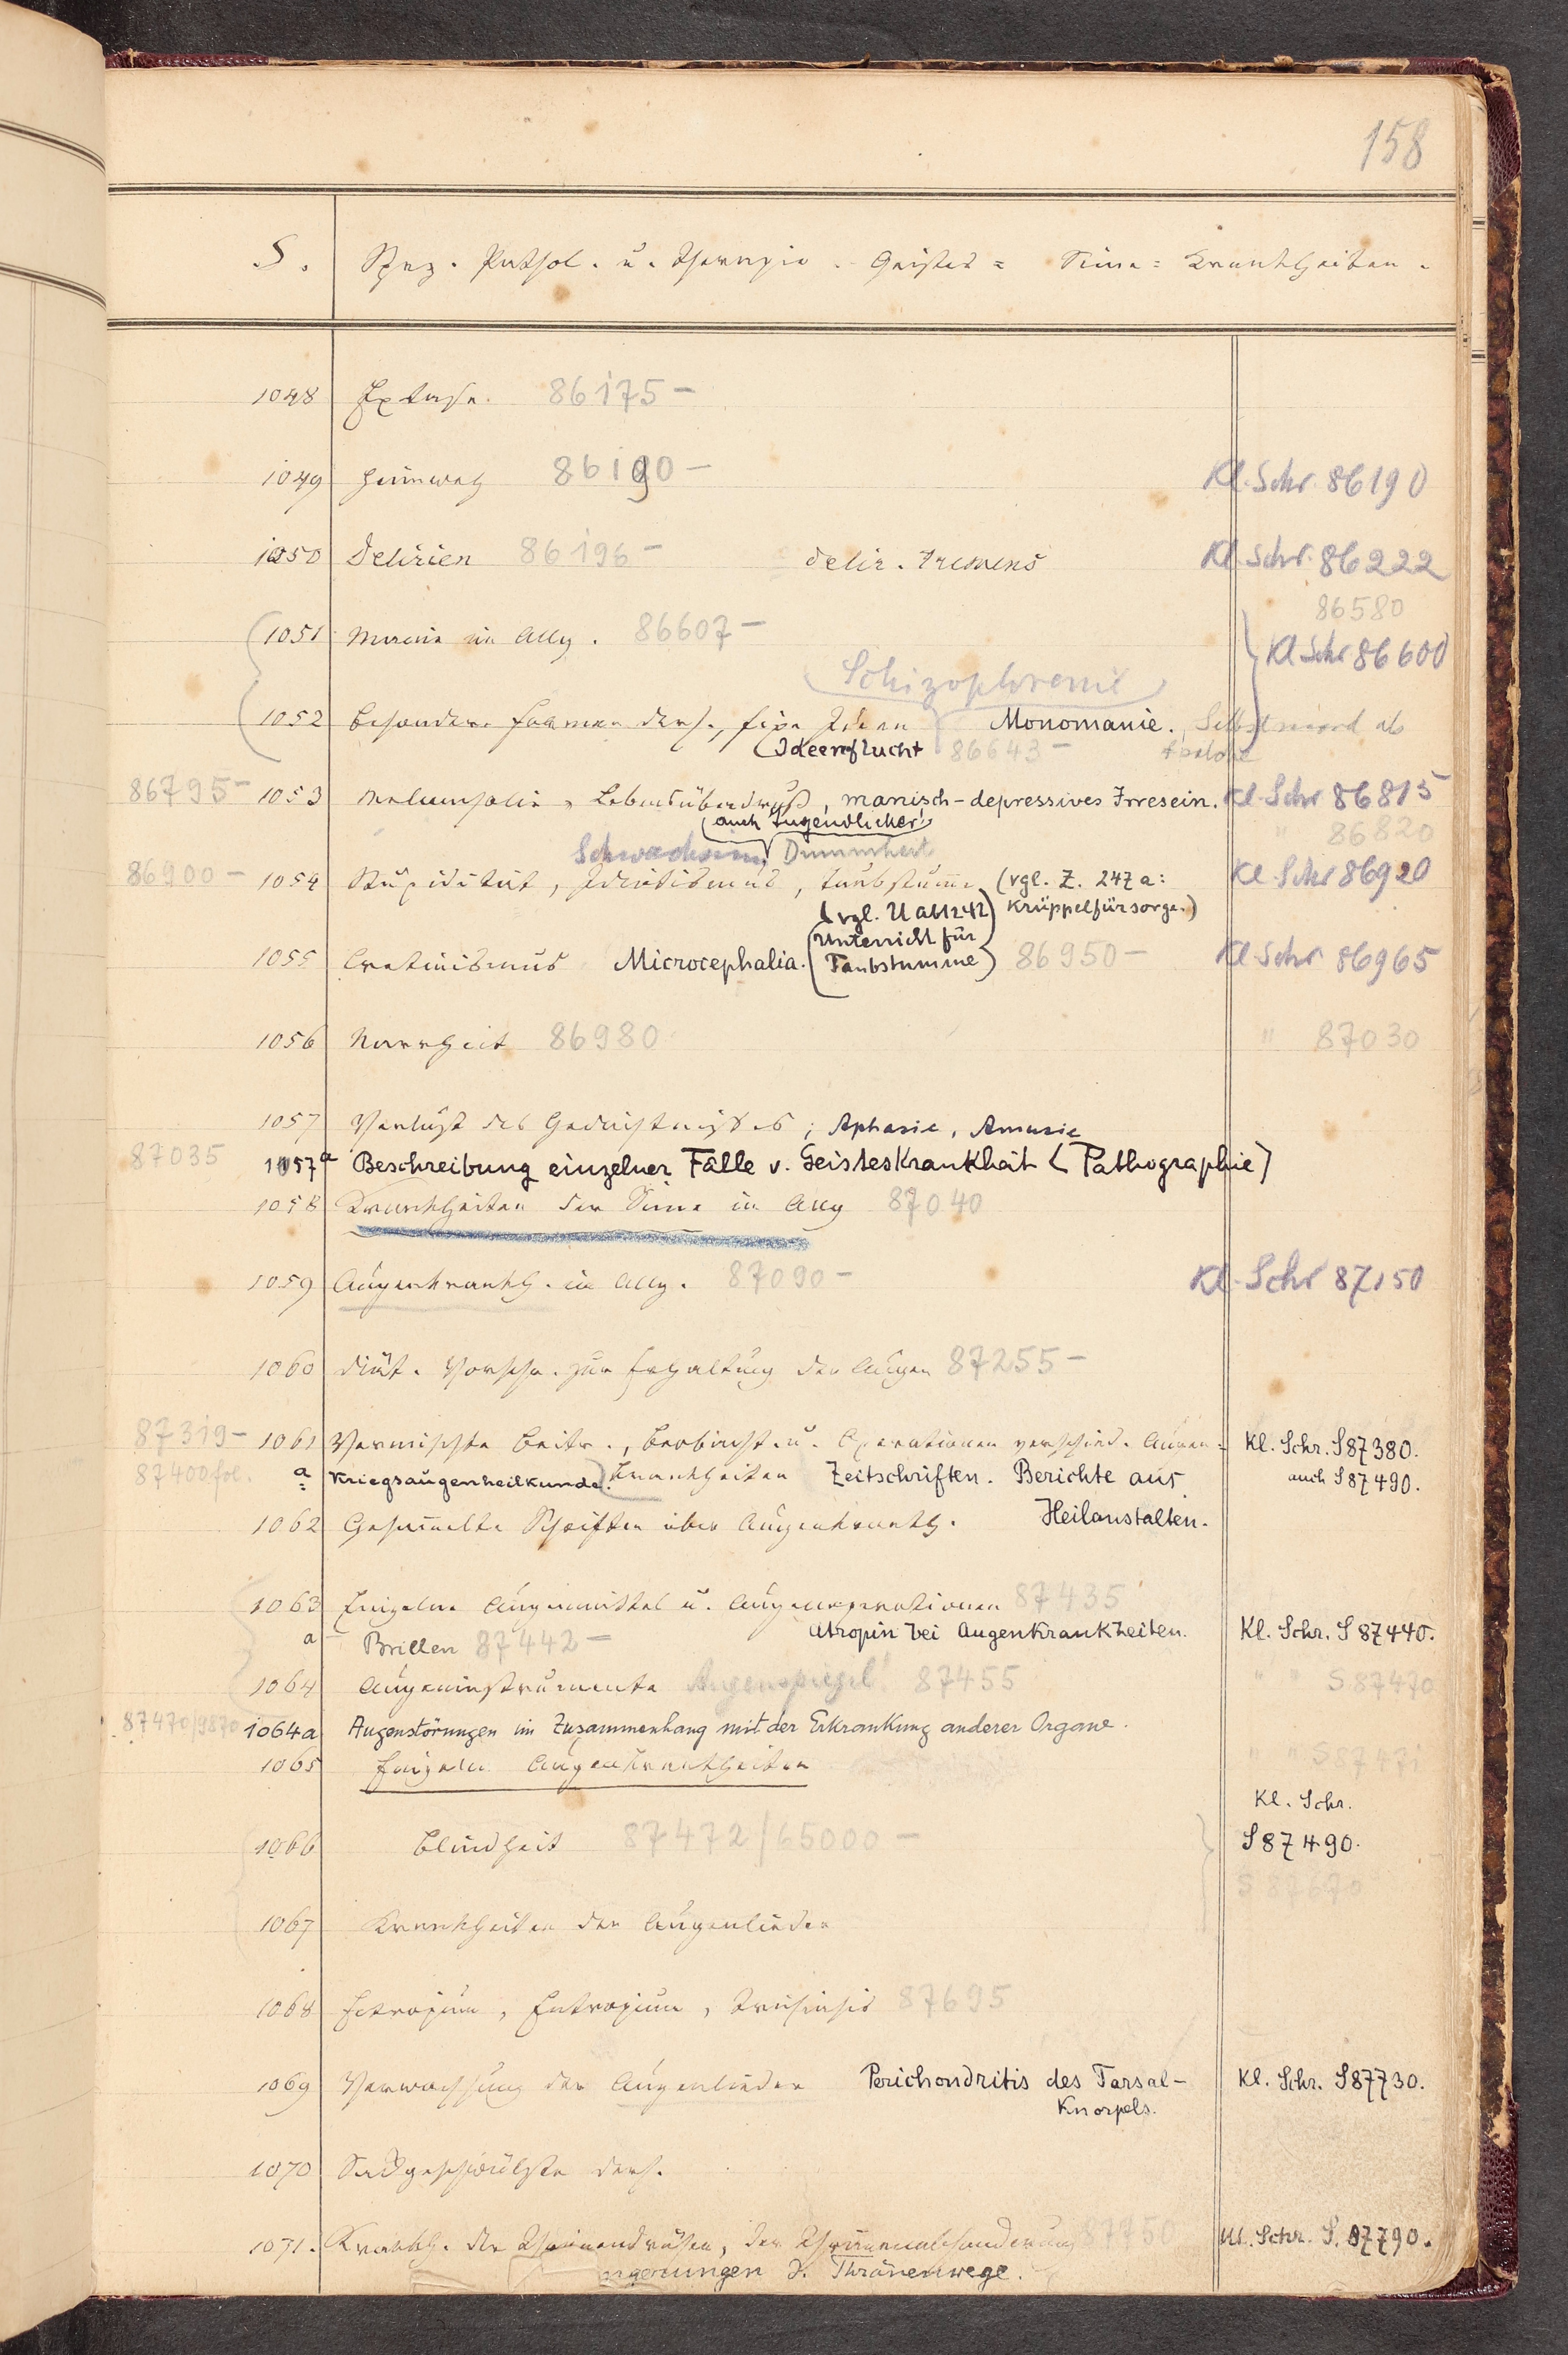 158
S. Spez. Pathol. u. Therapie. Geistes= Sinne= Krankheiten.
1048 Extase. 86175 –
1049 Heimweh 86190 – Kl. Schr. 86190
1050 Delirien 86196 – delir. tremens Kl. Schr. 86222
86580
1051 Manie im Allg. 86607 – Kl Schr 86600
(Schizophrenie)
1052 besondere Formen ders., fixe Ideen Monomanie. Selbstmord als
(Ideenflucht 86643 –
86795 – 1053 Melancholie, Lebensüberdruß, manisch-depressives Irresein. Kl. Schr 86815
(auch Jugendlicher) " 86820
Schwachsinn, Dummheit
86900 – 1054 Stupidität, Idiotismus, taubstumme (vgl. Z. 247a: Kl Schr 86920
(vgl. U ab1242) Krüppelfürsorge.)
(Unterricht für
1055 Cretinismus Microcephalia. Taubstumme) 86950 – Kl Schr 86965
1056 Narrheit 86980 " 87030
1057 Verlust des Gedächtnisses; Aphasie, Amusie
87035 1057a Beschreibung einzelner Fälle v. Geisteskrankheit (Pathographie)
1058 Krankheiten der Sinne im Allg 87040
1059 Augenkrankh. im Allg. 87090 – Kl. Schr 87150
1060 diät. Vorschr. zur Erhaltung der Augen 87255 –
87319 – 1061 Vermischte Beitr., Beobacht. u. Operationen verschied. Augen= Kl. Schr. S 87380.
87400 fol. a Kriegsaugenheilkunde.) krankheiten Zeitschriften. Berichte aus auch S 87490.
1062 Gesammelte Schriften über Augenkrankh. Heilanstalten.
1063 Einzelne Augenmittel u. Augenoperationen 87435
a Brillen 87442 – Atropin bei Augenkrankheiten. Kl. Schr. S 87440.
1064 Augeninstrumente Augenspiegel 87455 " " S 87470
87470/9870 1064a Augenstörungen im Zusammenhang mit der Erkrankung anderer Organe.
1065 Einzelne Augenkrankheiten " " S 87471
Kl. Schr.
1066 Blindheit 87472/65000 – S 87490.
S 87670
1067 Krankheiten der Augenlieder
1068 Ectropium, Entropium, Trichiasis 87695
1069 Verwachsung der Augenlieder Perichondritis des Tarsal- Kl. Schr. S 87730.
Knorpels.
1070 Sackgeschwülste ders.
1071. Krankh. der Thränendrüsen, der Thränenabsonderung 87750 Kl. Schr. S. 87790.
ngerungen d. Thränenwege.